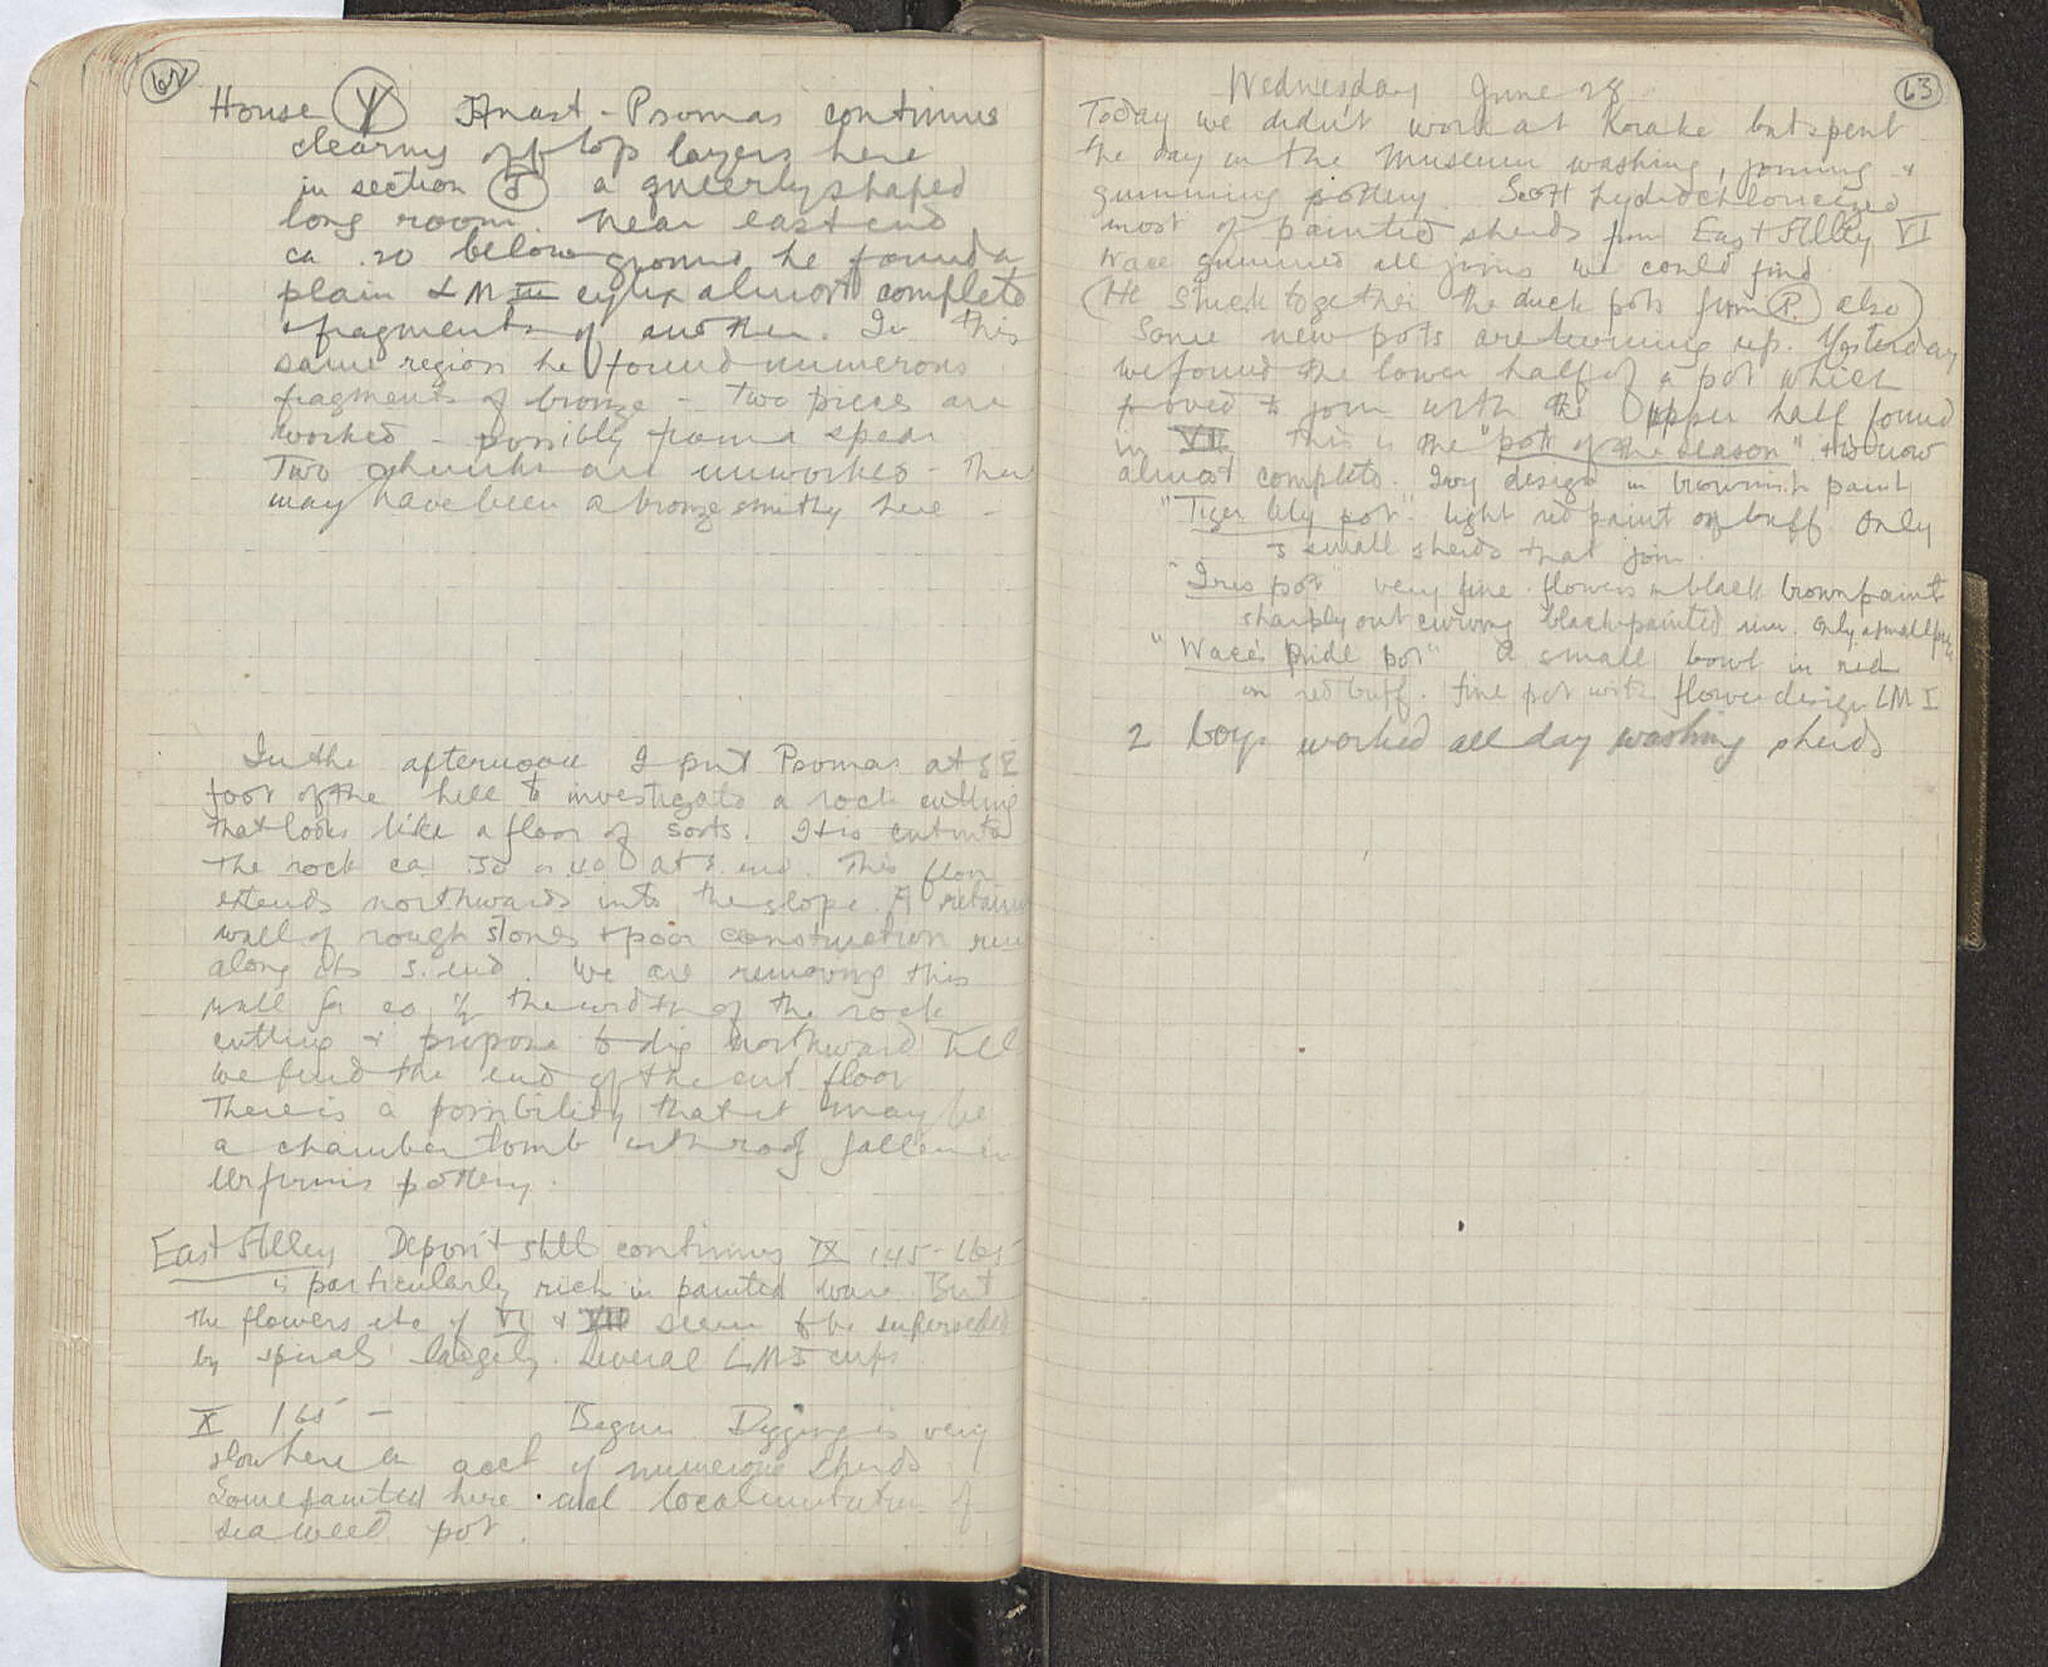 62
House Y Anast-Psomas continues
clearing off top layers here
in section 5 a queerly shaped
long room. Near east end
ca .20 below ground he found a
plain LM III cylix almost complete
& fragments of another. In this
same region he found numerous
fragments of bronze - two pieces are
worked - possibly from a spear
Two chunks are unworked - there
may have been a bronze smithy here -
In the afternoon I put Psomas at SE
foot of the hill to investigate a rock cutting
that looks like a floor of sorts. It is cut into
the rock ca .30 or .40 at S. end. This floor
extends northwards into the slope. A retaining
wall of rough stones & poor construction runs
along its S. end. We are removing this
wall for ca ½ the width of the rock
cutting & propose to dig northward till
we find the end of the cut floor
There is a possibility that it may be
a chamber tomb with roof fallen in
Urfirnis pottery.
East Alley Deposit still continues IX 145-165
is particularly rich in painted ware. But
the flowers etc of VI & VII seem to be superseded
by spirals largely. Several LM I cups
X 165 - Begun. Digging is very
slow here on acct of numerous sherds
Some painted here and local imitation of
sea weed pot.
63
Wednesday June 28
Today we didn't work at Korako but spent
the day in the Museum washing, joining &
gumming pottery. Scott hydrochloricized
most of painted sherds from East Alley VI
Wace gummed all joins we could find
(He stuck together the duck pots from P. also)
Some new pots are turning up. Yesterday
we found the lower half of a pot which
proved to join with the upper half found
in VII. This is the "pot of the season" & is now
almost complete. Ivy design in brownish paint
"Tiger lily pot". light red paint on buff. Only
3 small sherds that join.
"Iris pot" very fine. flowers in black brown paint
sharply out curving black painted rim. Only a small pce
"Wace's pride pot" A small bowl in red
on red buff. fine pot with flower design LM I
2 boys worked all day washing sherds